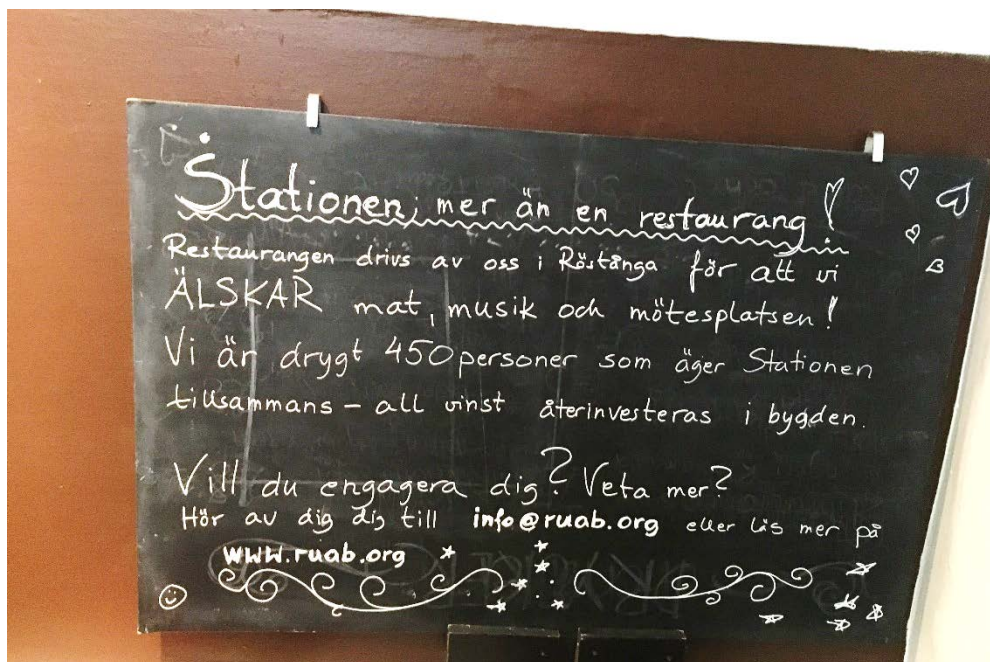 Stationen, mer än en restaurang!
Restaurangen drivs av oss i Röstånga för att vi
ÄLSKAR mat, musik och mötesplatsen!
Vi är drygt 450 personer som äger Stationen
tillsammans – all vinst återinvesteras i bygden.
Vill du engagera dig? Veta mer?
Hör av dig dig till info@ruab.org eller läs mer på
www.ruab.org